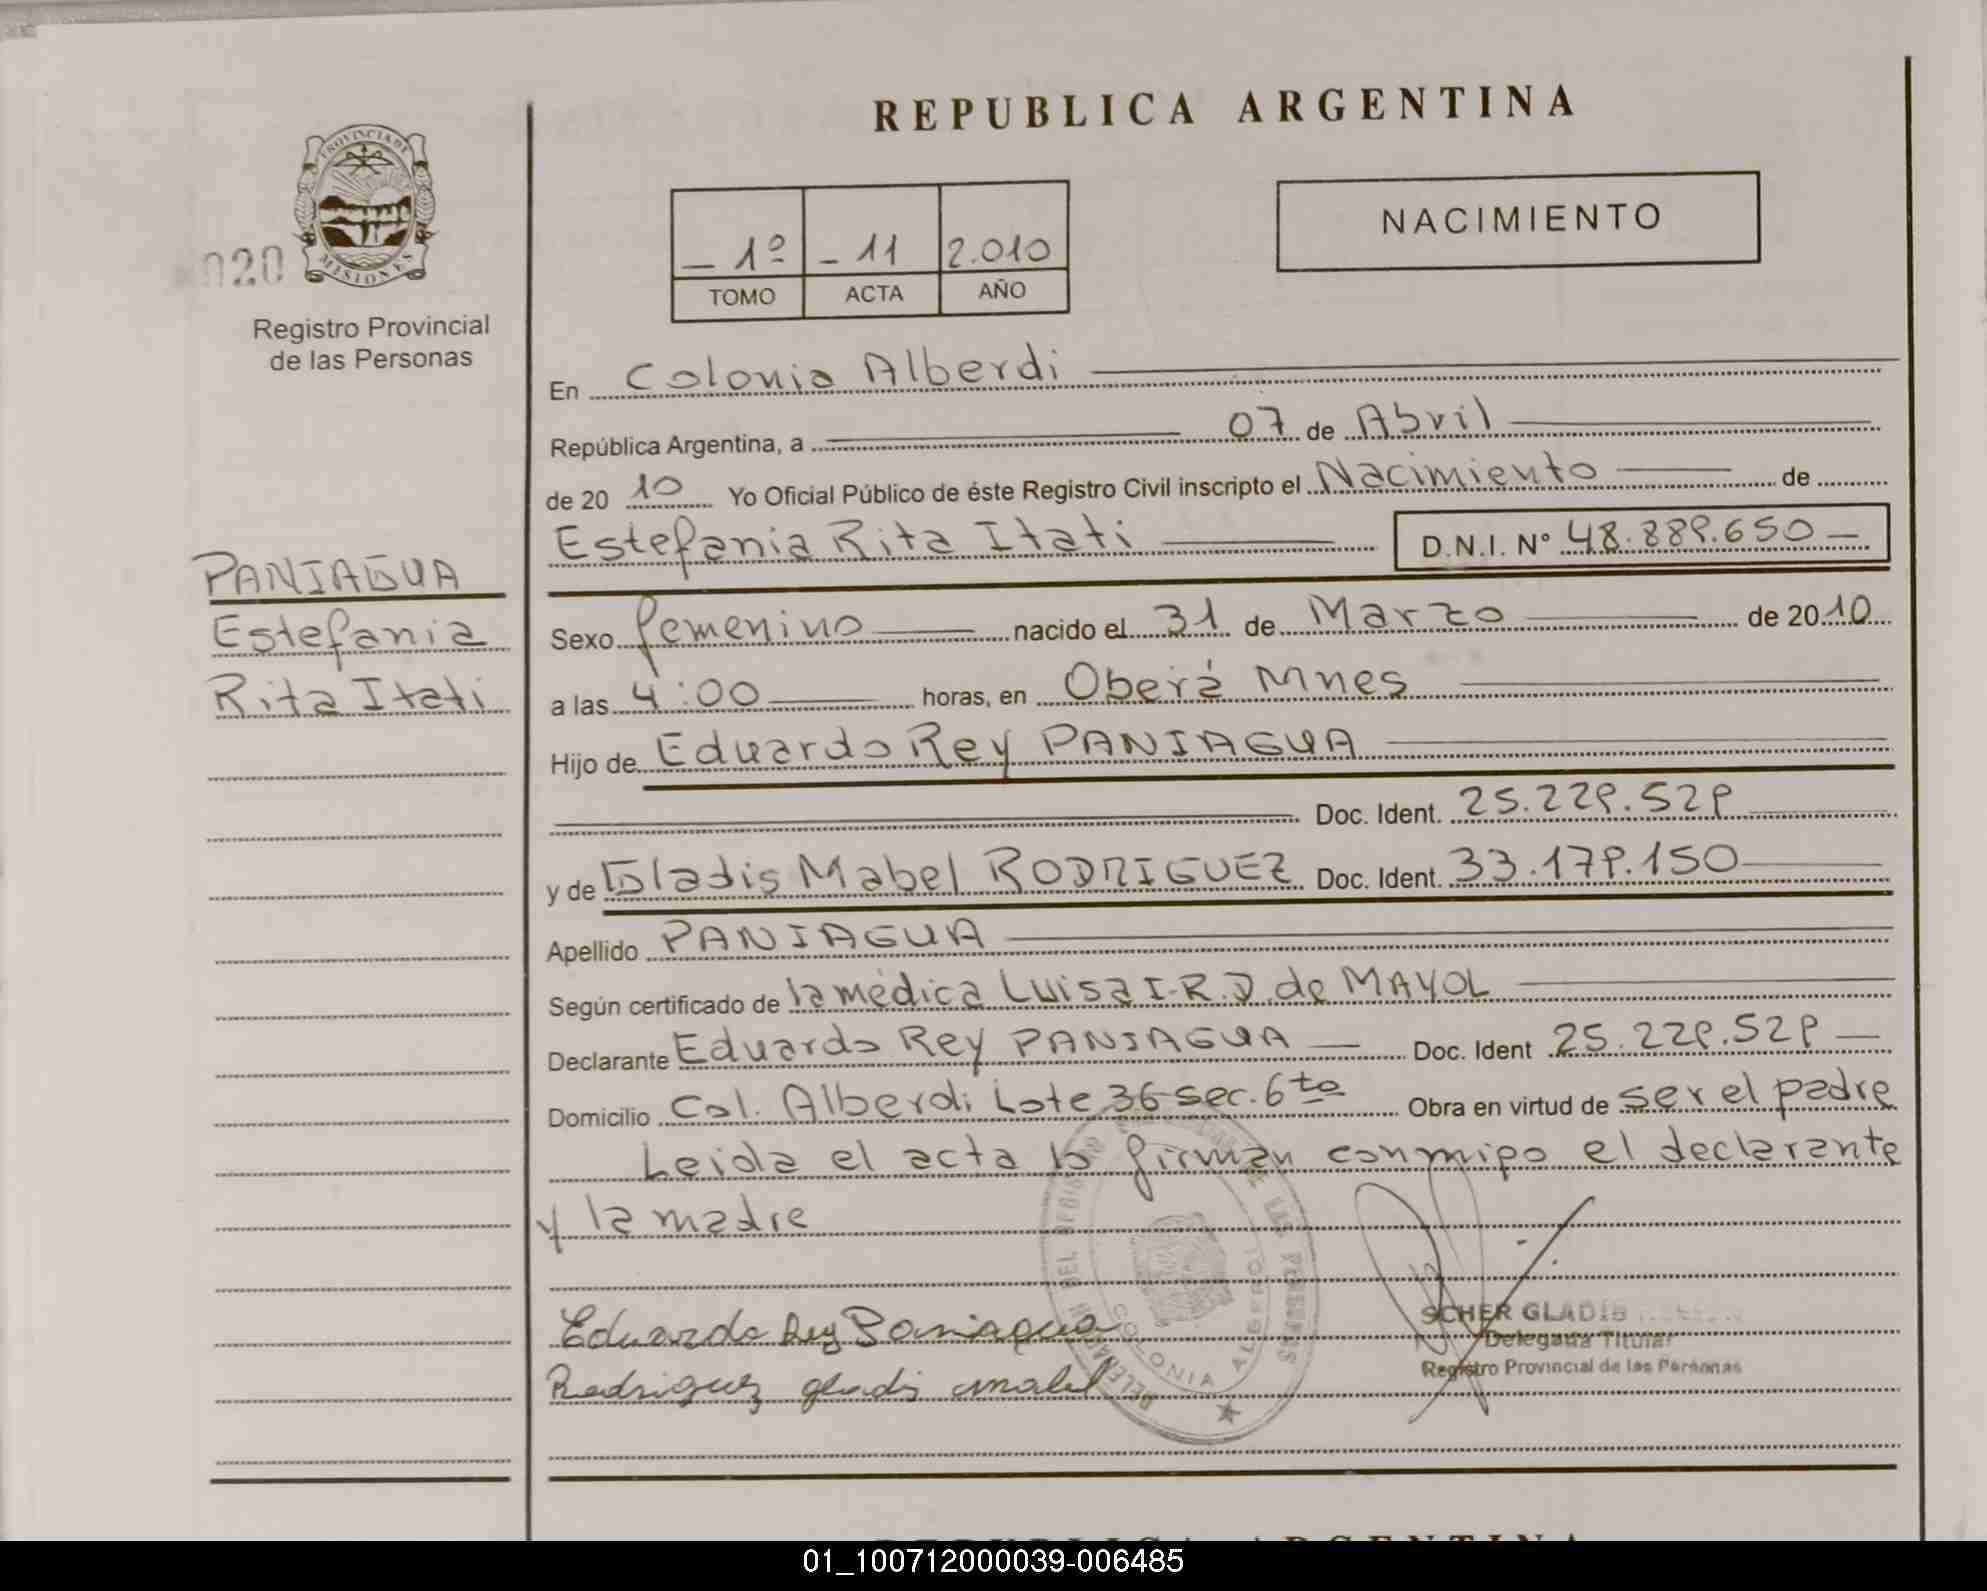 REPUBLICA ARGENTINA
PROVINCIA DE
MISIONES
020
Registro Provincial
de las Personas
1º - 11 2.010
TOMO ACTA AÑO
NACIMIENTO
En Colonia Alberdi
República Argentina, a 07 de Abril
de 20 10 Yo Oficial Público de éste Registro Civil inscripto el Nacimiento de
Estefania Rita Itati D.N.I. Nº 48.889.650
PANIAGUA
Estefania
Rita Itati
Sexo femenino nacido el 31 de Marzo de 2010
a las 4:00 horas, en Oberá Mnes
Hijo de Eduardo Rey PANIAGUA
Doc. Ident. 25.229.529
y de Gladis Mabel RODRIGUEZ Doc. Ident. 33.179.150
Apellido PANIAGUA
Según certificado de la médica Luisa I.R.D. de MAYOL
Declarante Eduardo Rey PANIAGUA Doc. Ident 25.229.529
Domicilio Col. Alberdi Lote 36 sec. 6to Obra en virtud de ser el padre
Leida el acta la firman conmigo el declarante
y la madre
Eduardo Rey Paniagua
Rodriguez gladis mabel
COLONIA ALBERDI
SCHER GLADIS
Delegada Titular
Registro Provincial de las Personas
REPUBLICA ARGENTINA
01_100712000039-006485